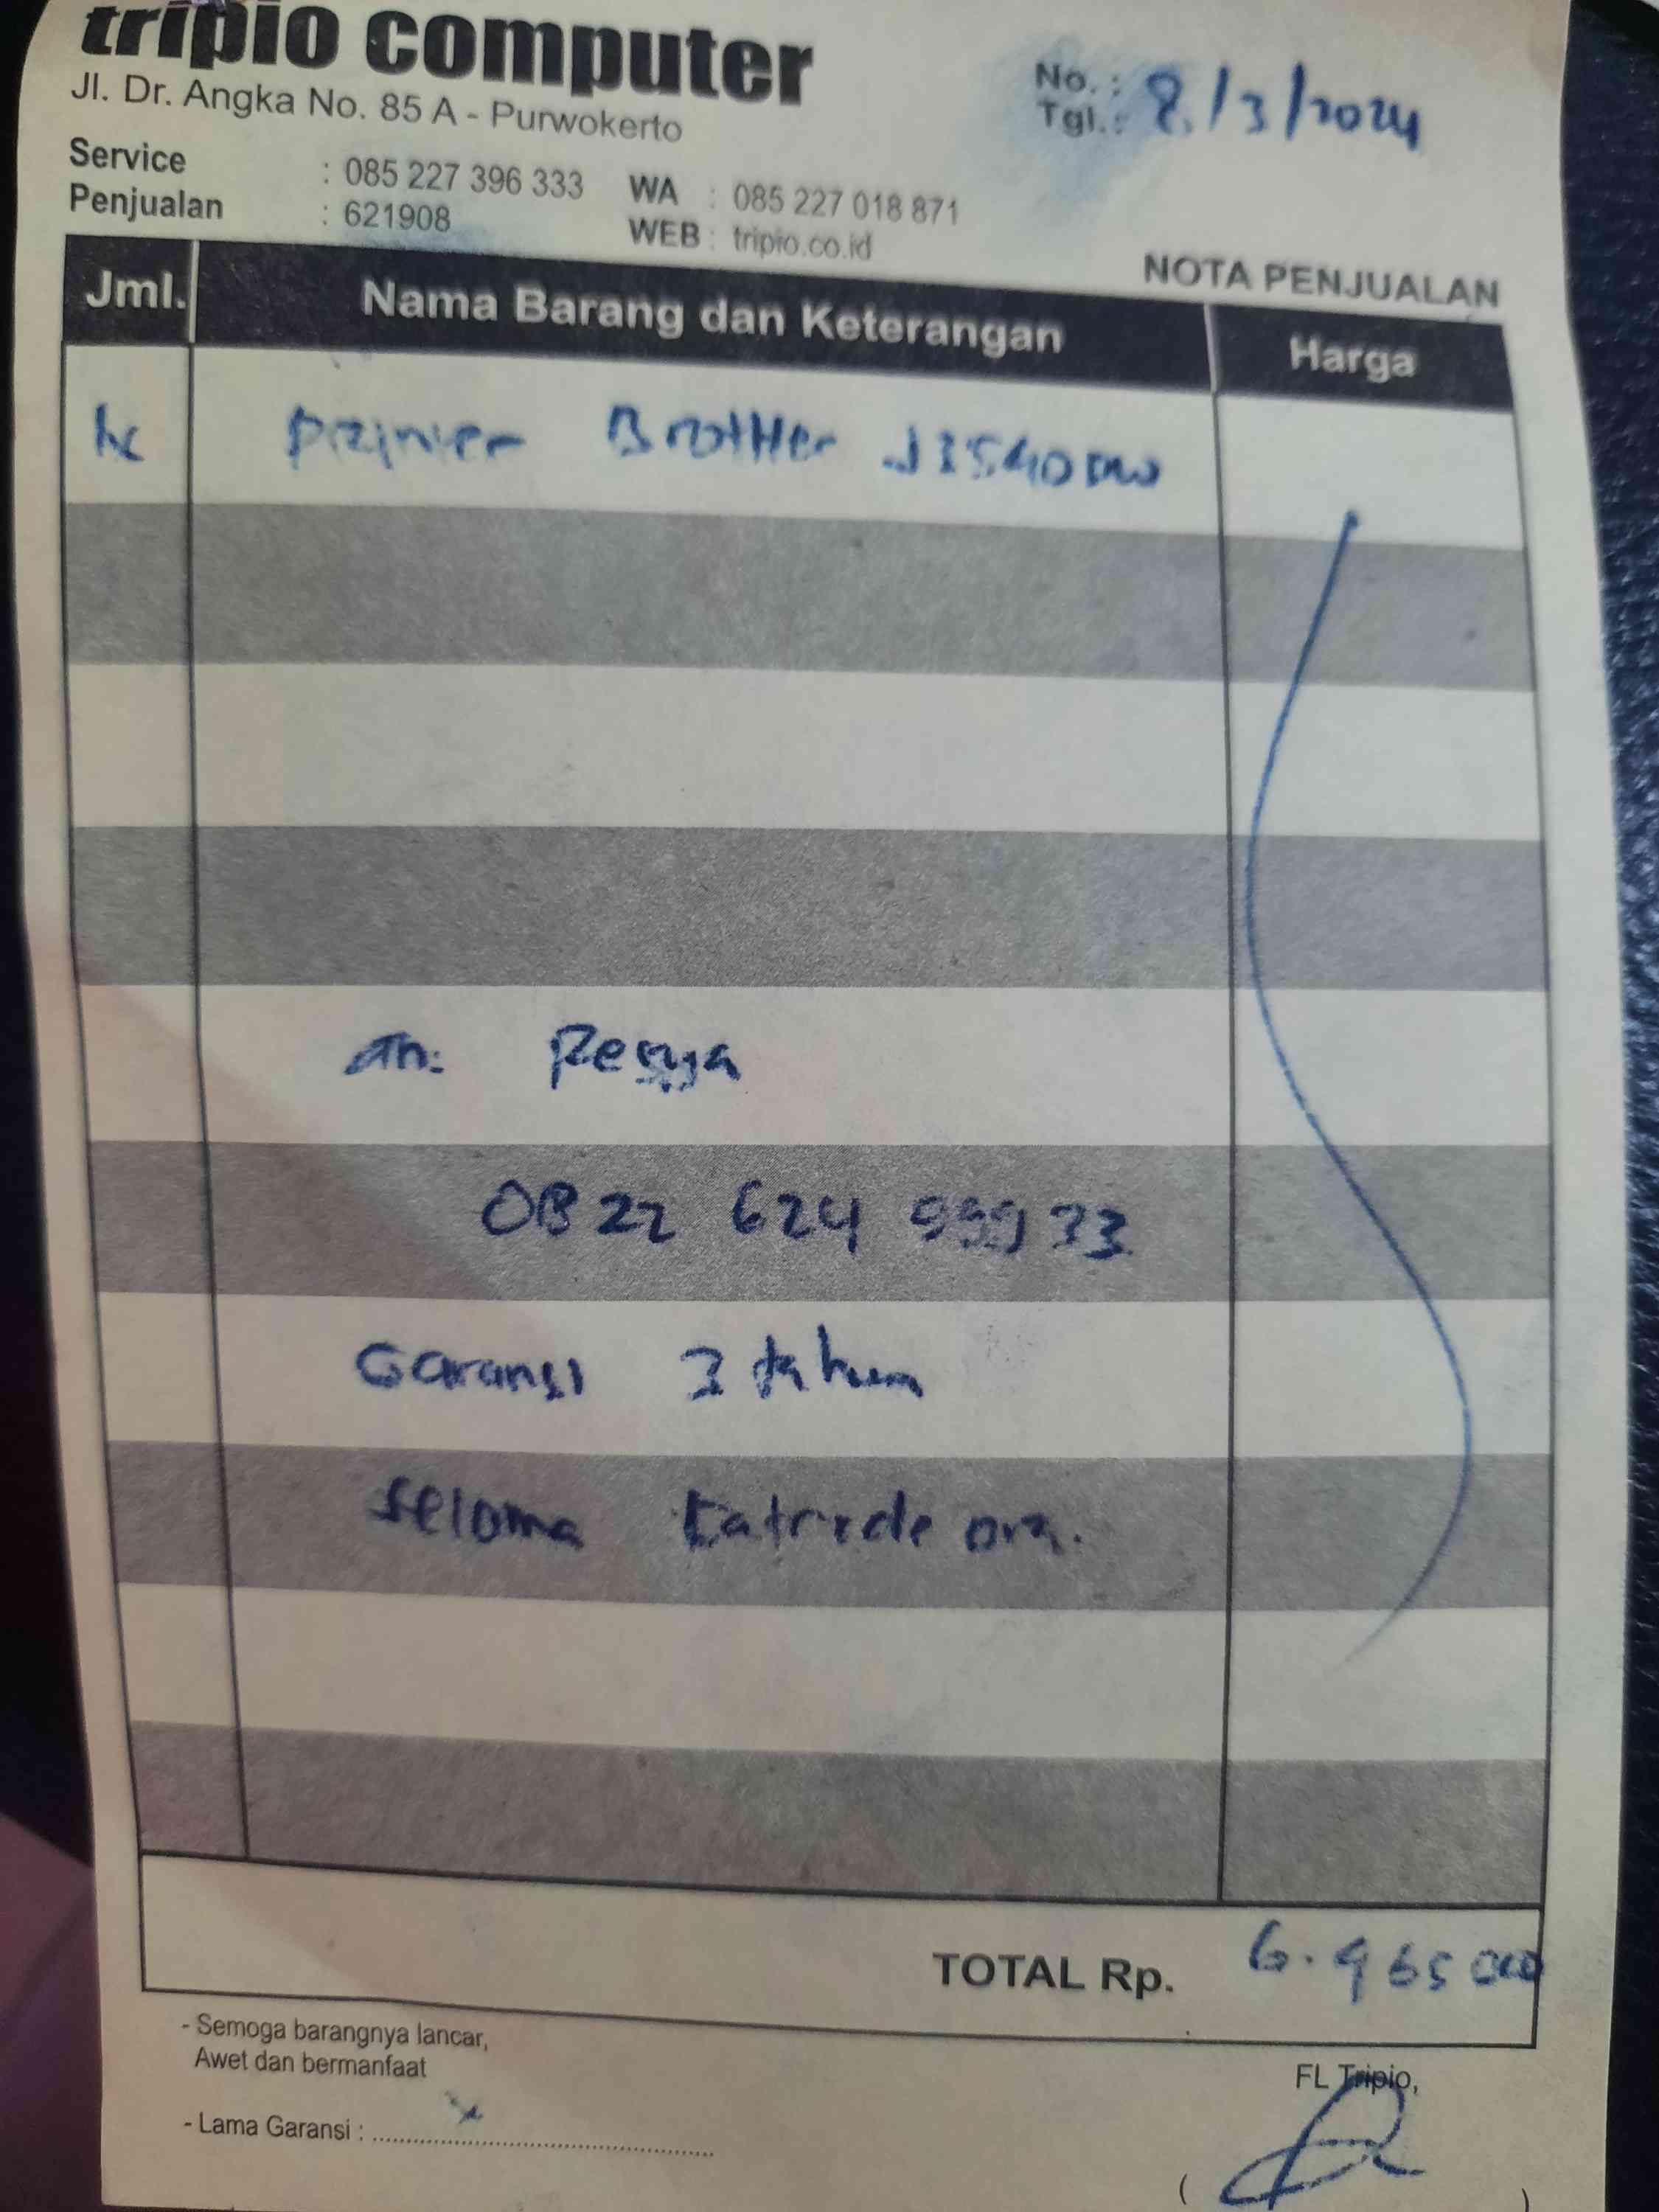 tripio computer
Jl. Dr. Angka No. 85 A - Purwokerto
No. :
Tgl. : 8/3/2024
Service : 085 227 396 333 WA : 085 227 018 871
Penjualan : 621908 WEB : tripio.co.id
NOTA PENJUALAN
Jml. Nama Barang dan Keterangan Harga
Brother J3540DW
An:
0822 624
Garansi 3 tahun
selama
TOTAL Rp. 6.965000
- Semoga barangnya lancar,
Awet dan bermanfaat
FL Tripio,
- Lama Garansi :
( )